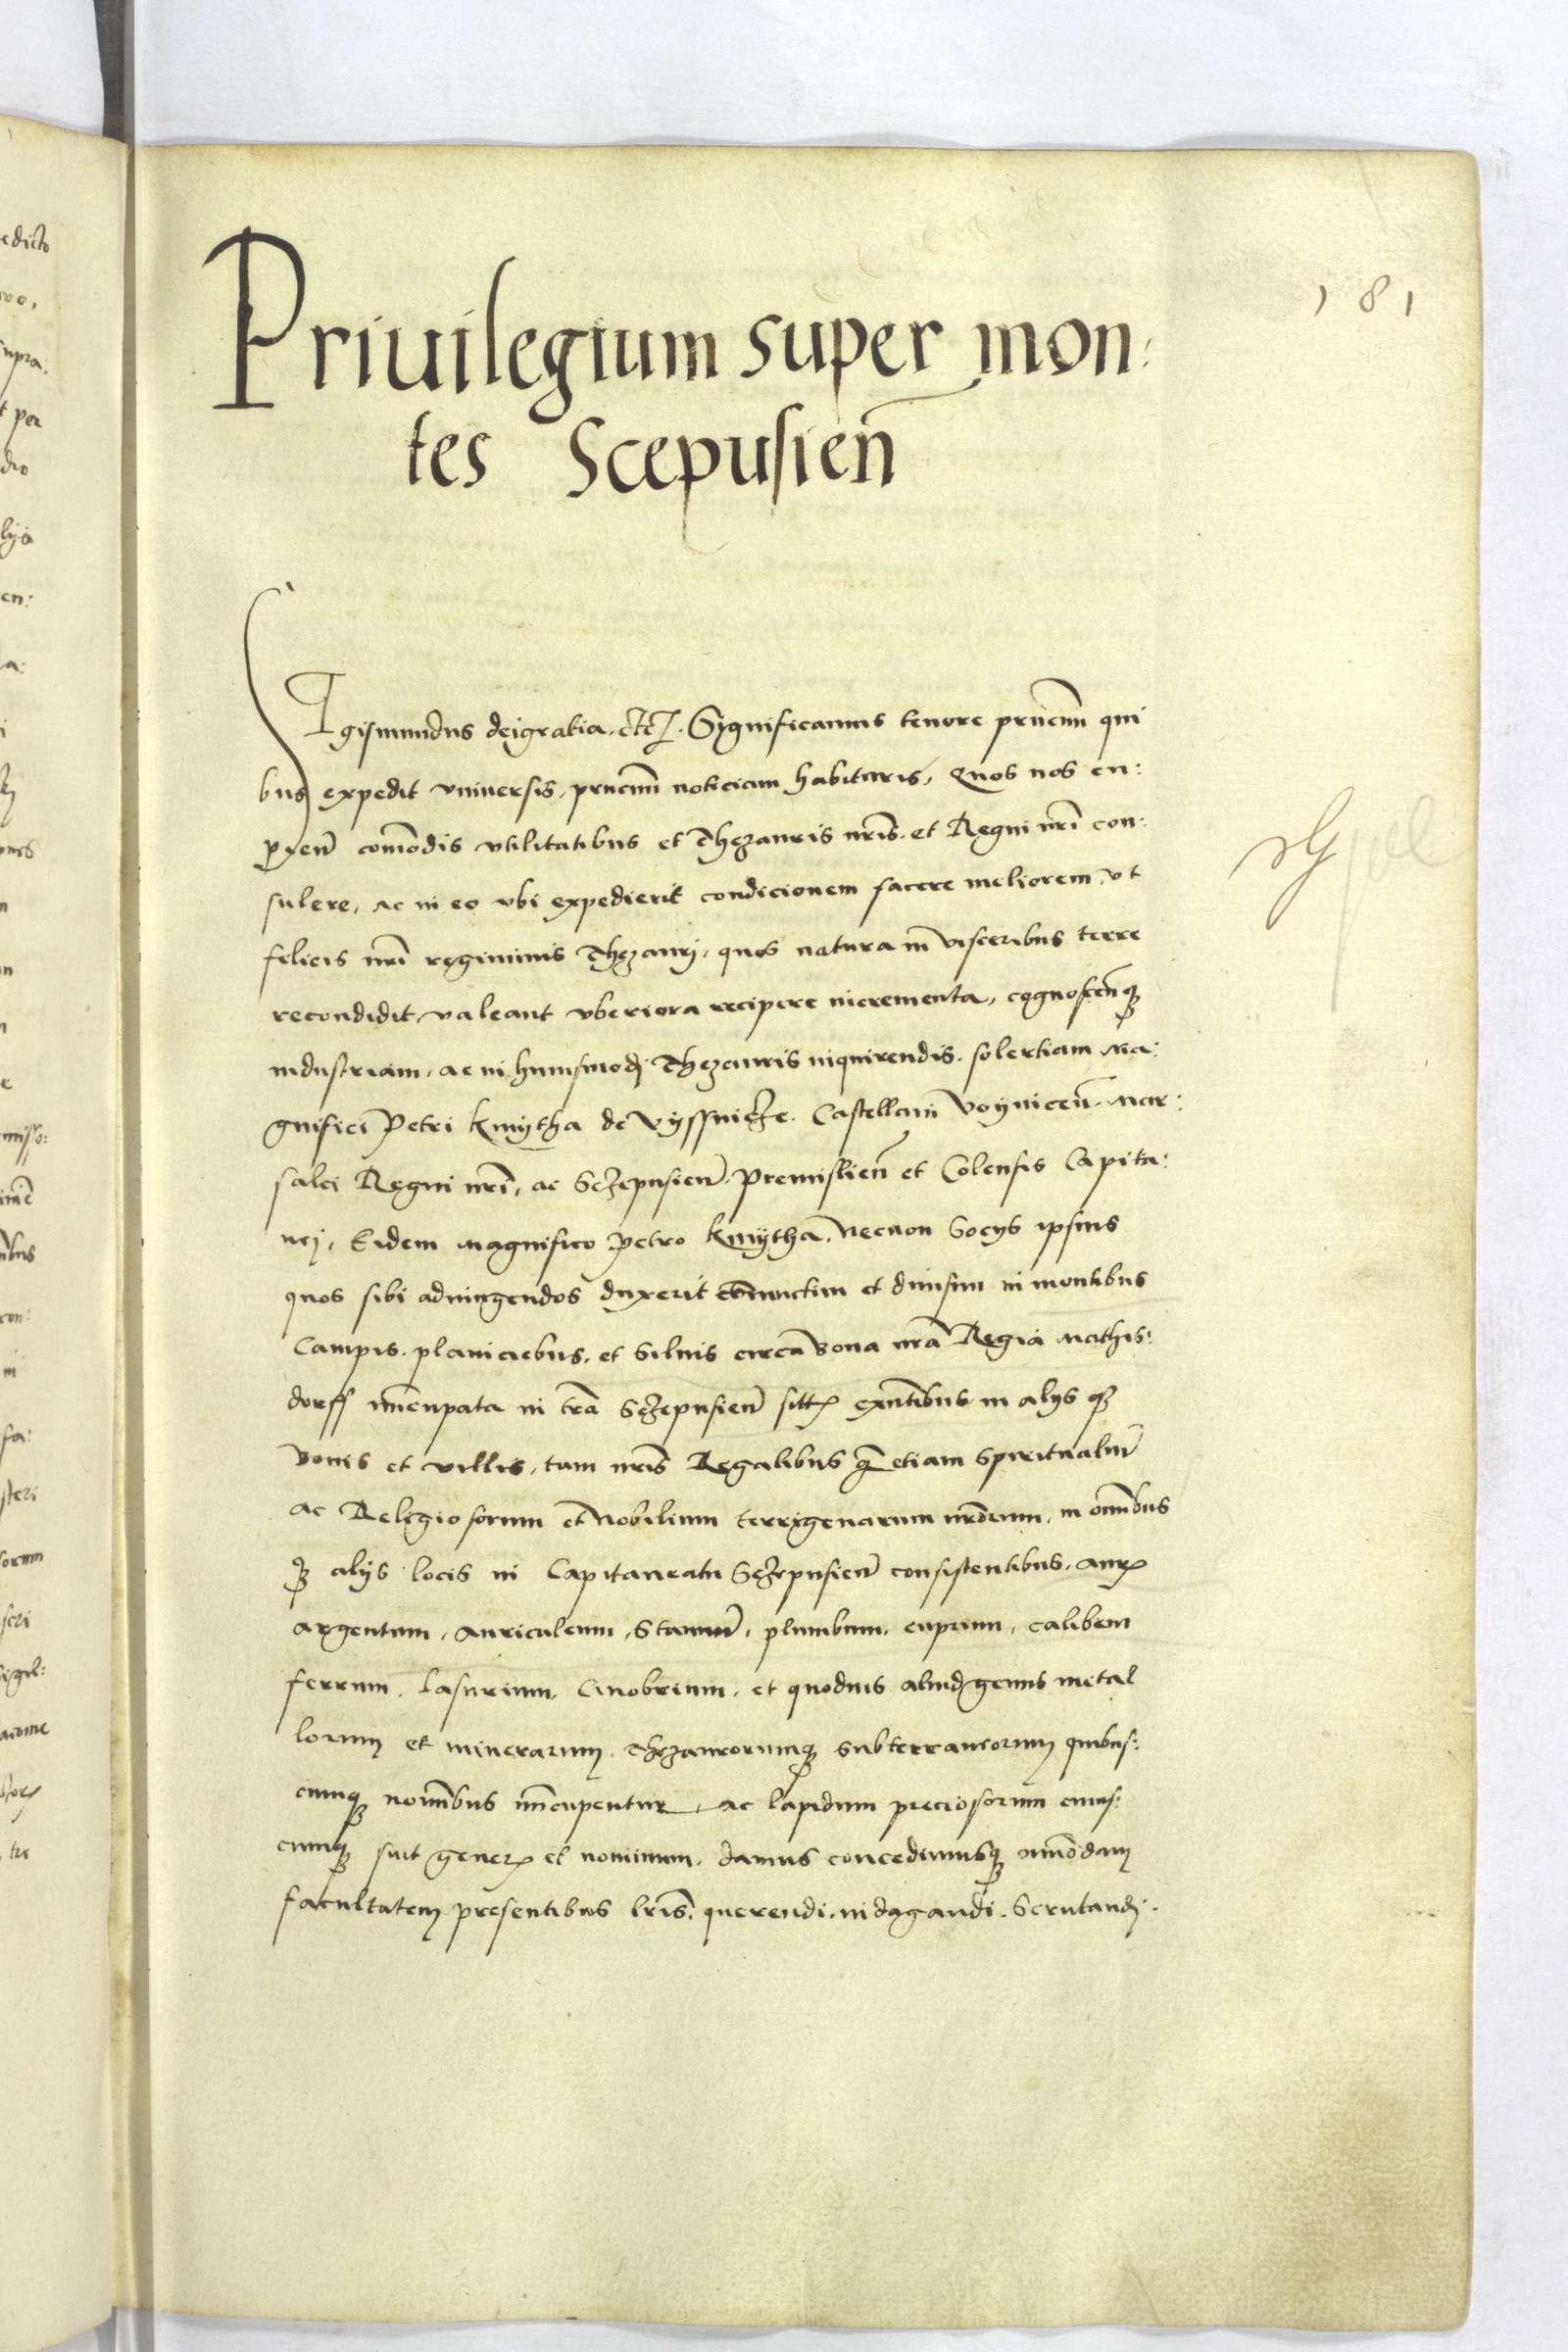 181
Priuilegium super mon:
tes Scepusien̄
Sigismundus deigratia. etc. Significamus tenore prn̄cium qui
bus expedit vniuersis, prn̄cium noticiam habituris, Quos nos cu:
pien̄ comodis vtilitatibus et Thezauris nr̄is. et Regni nr̄i con:
sulere, ac in eo vbi expedierit condicionem facere meliorem, vt
felicis nr̄i regiminis Thezauri, quos natura in visceribus terre
recondidit, valeant vberiora recipere incrementa, cognoscen̄q
industriam, ac in huiusmodi Thezauris inquirendis. solertiam Ma:
gnifici Petri Kmytha de Vyssnicze. Castellani Voynicen̄. Mar:
salci Regni nr̄i, ac Sczepusien̄. Premislien̄ et Colensis Capita:
nei, Eidem Magnifico Petro Kmytha. Necnon Socys ipsius
quos sibi adiungendos duxerit coniunctim et diuisim in montibus
Campis. planiciebus. et Siluis circa bona nr̄a Regia Mathis:
dorff nūcupata in tr̄a Sczepusien̄ sitt exn̄tibus in alys q
bonis et villis, tam nr̄is Regalibus q̄ etiam Spiritualiū
ac Religiosorum et Nobilium terrigenarum nr̄orum, in oīnibus
q alys locis in Capitaneatu Sczepusien̄ consistentibus. Aur
argentum, Auriculeum, Stannū, plumbum, cuprum, calibem
ferrum. Lasurium. Cinobrium. et quoduis aliud genus metal
lorum et minerarum. Thezaurorumq subterraneorum quibus:
cunq noīnibus nūcupentur, ac lapidum preciosorum cuius:
cunq sint gener et nominum. damus concedimusq oīmodam
facultatem presentibus lr̄is. querendi. indagandi. Scrutandi.